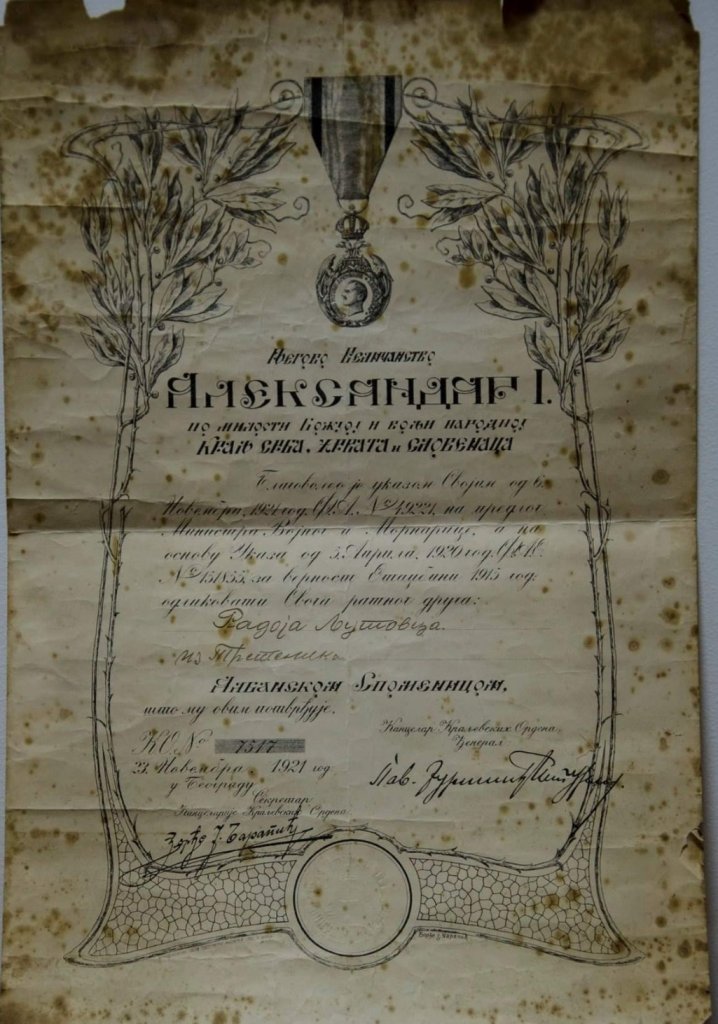 Његово Величанство
Александар I.
по милости Божјој и вољи народној
Краљ Срба, Хрвата и Словенаца
Благоволео је указом Својим од 6.
Новембра, 1921 год. на предлог
Министра Војног и Морнарице, а на
основу Указа од 5. Априла, 1920 год.
за верност Отаџбини 1915 год.
одликовати Свога ратног друга:
Радоја Лутовца
из
Албанском Споменицом,
што му овим потврђује.
КО. № 7517
23. Новембра 1921 год
у Београду
Канцелар Краљевских Ордена,
Ђенерал
Пав. Јуришић Штурм
Секретар
Канцеларије Краљевских Ордена